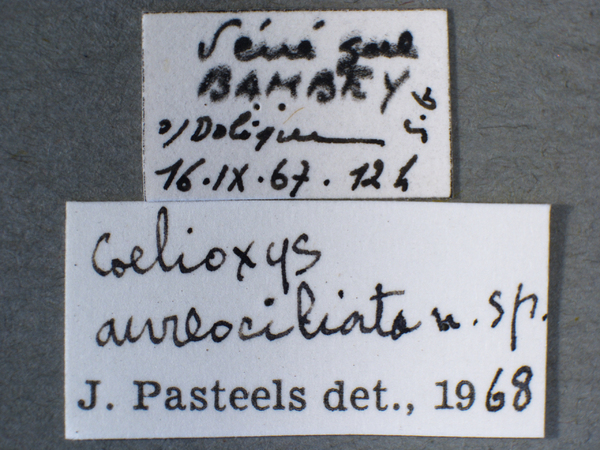 Sénégal
BAMBEY
s/Dolique
16.IX.67. 12 h
Coelioxys
aureociliata n. sp.
J. Pasteels det., 1968